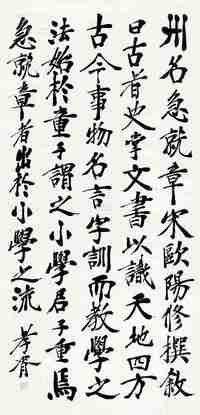 州名急就章宋歐陽修撰敘
曰古者史掌文書以識天地四方
古今事物名言字訓而教學之
法始於童子謂之小學君子重焉
急就章者出於小學之流 孝胥